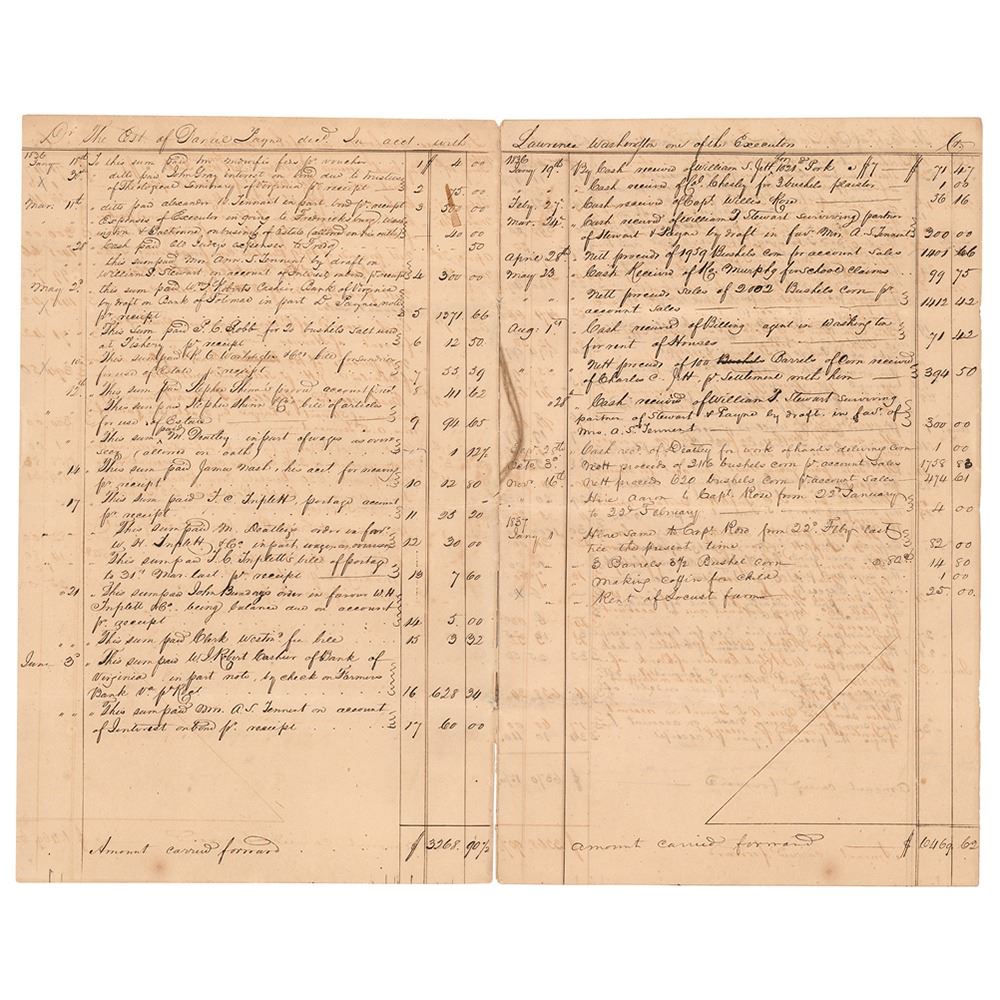 Dr The Est of Daniel Payne decd In acct with
1836
Jany 11th To this sum paid fees pr voucher 1 $ 4 00
ditto paid John Gray interest on bond due to trustees
of Theological Seminary of Virginia pr receipt 2 75.00
Mar. 11th ditto paid Alexander Tennant in part bond pr receipt 3 500 00
Expenses of Executor in going to Fredericksburg
& Richmond on business of Estate (allowed on his oath) 40 00
Cash paid expenses to 50
this sum paid Mrs Ann S. Tennent by draft on
William T Stewart on account of Interest pr receipt 4 300 00
May 2d this sum paid W. J. Roberts Cashier Bank of Virginia
by draft on Bank of Potomac in part D. Paynes note
pr receipt 5 1371 66
This sum paid for 20 bushels Salt used
at Fishery pr receipt 6 12 50
10 This sum paid &Co's bill for
for use of Estate pr receipt 7 53 59
12th This sum paid Stephen account 41 62
This sum paid Stephen &Co bill of articles
for use of Estate 9 94 65
This sum paid M. Deatley in part of wages as over
seer (allowed on oath) 1 12½
14 This sum paid James Nash, his acct for weaving
pr receipt 10 12 80
17 This sum paid T. C. Triplett, postage account
pr receipt 11 25 20
This sum paid M. Deatley's order in favr
W. H. Triplett &Co in part, wages as overseer 12 30 00
This sum paid T. C. Triplett's bill of postage
to 31st Mar. last pr receipt 13 7 60
" 21 " This sum paid John order in favour W. H.
Triplett &Co. being balance due on account
pr receipt 14 5.00
" " " This sum paid Clerk fee bill 15 3 32
June 3d " This sum paid W J Robert Cashier of Bank of
Virginia in part note, by check on Farmers
Bank Va pr Rect 16 628 34
" " " This sum paid Mrs. A S. Tennent on account
of Interest on bond pr. receipt 17 60 00
Amount carried forward $ 3268. 90½
Lawrence Washington one of the Executors Cr
1836
Jany 19th By Cash received of William S. Jett for Pork a $7 $ 71 47
Cash received of Chesley for 2 bushels plaster 1 00
Feby 27 Cash receive of Capt. Willis Rose 36 16
Mar. 24 Cash received of William T Stewart Surviving partner
of Stewart & Payne by draft in favr Mrs A. S Tennent 300 00
April 28th Nett proceeds of 1959 Bushels corn pr account Sales 1401 66
May 23 Cash Received of Murphy for school claims 99 75
" " " Nett proceeds Sales of 2002 Bushels corn pr
account sales 1412 42
Aug: 1st Cash received of Billing agent in Washington
for rent of Houses 71 42
Nett proceeds of 100 Bushels Barrels of Corn received
of Charles C. Jett pr Settlement with him 394 50
" 28th Cash received of William T. Stewart Surviving
partner of Stewart & Payne by draft in favr. of
Mrs. A. S. Tennent 300 00
Sept 25th Cash recd. of Deatley for work of hands delivering corn 1 00
Octo 3d Nett proceeds of 2116 bushels corn pr account Sales 1758 83
Nov. 16th Nett proceeds 620 bushels corn pr account Sales 474 61
Hire Aaron to Capt. Rose from 22d January
to 22d February 4 00
1837
Jany 1 Hire Sam to Capt. Rose from 22d Feby last
till the present time 32 00
" 3 Barrels 3½ Bushel corn 14 80
Making coffin for child 1 00
" Rent of Locust farm 25 00.
Amount carried forward $ 6469. 62